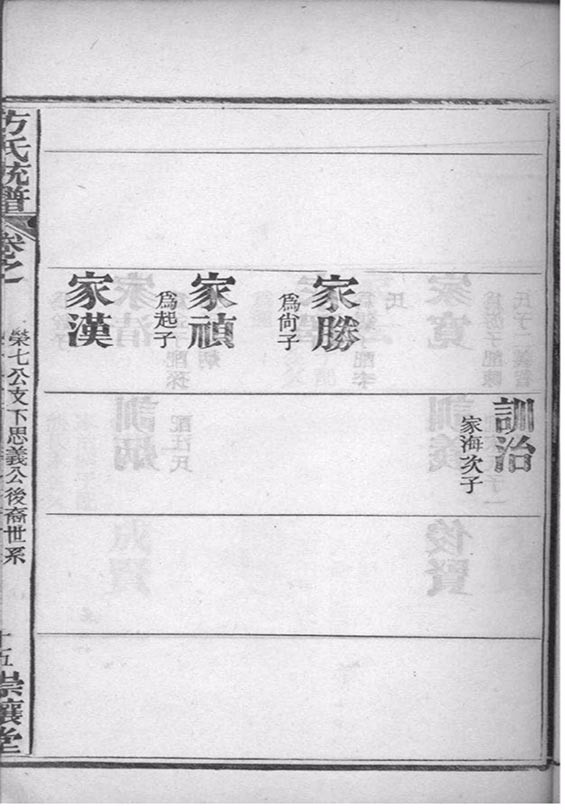 訓治
家海次子
家勝
為尙子
家禎
為起子
家漢
方氏統譜
卷之
榮七公支下思義公後裔世系
十五
崇讓堂